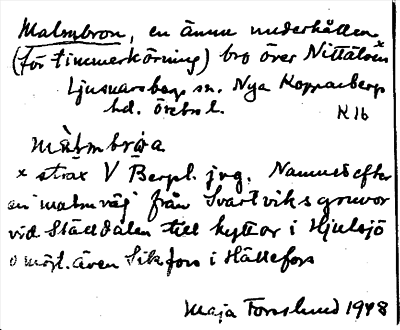 Malmbron, en ännu underhållen
(för timmerkörning) bro över Nittälven x
Ljusnarsbergs sn. Nya Kopparbergs
hd. Örebro l. K 16
målmbrōa
x strax V Bergl. jvg. Namnet efter
en "malmväg" från Svartviks gruvor
vid Ställdalen till hyttor i Hjulsjö
o möjl. även Sikfors i Hällefors
Maja Forsslund 1948